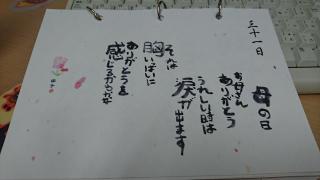 三十一日
母の日
お母さん
ありがとう
うれしい時は
涙が出ます
そんな
胸いっぱいに
ありがとうを
感じるからかな